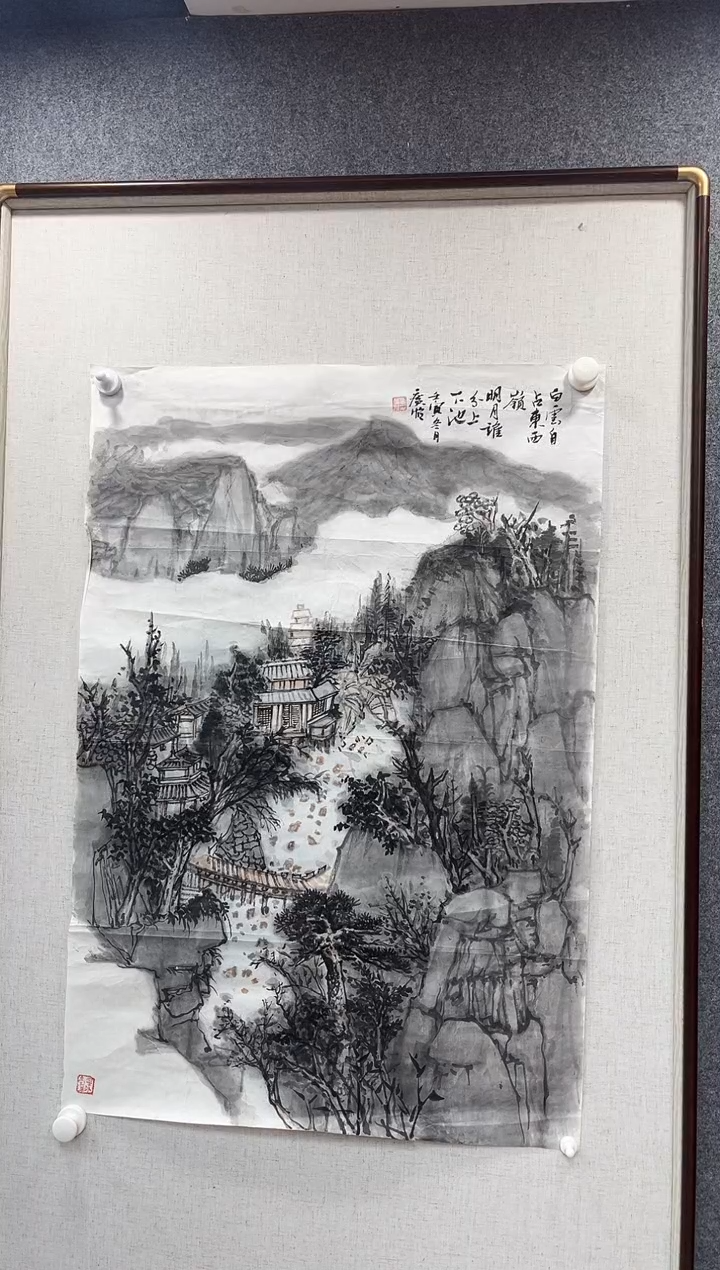 白雲自
占東西
嶺
明月誰
分上
下池
壬寅冬月
廣